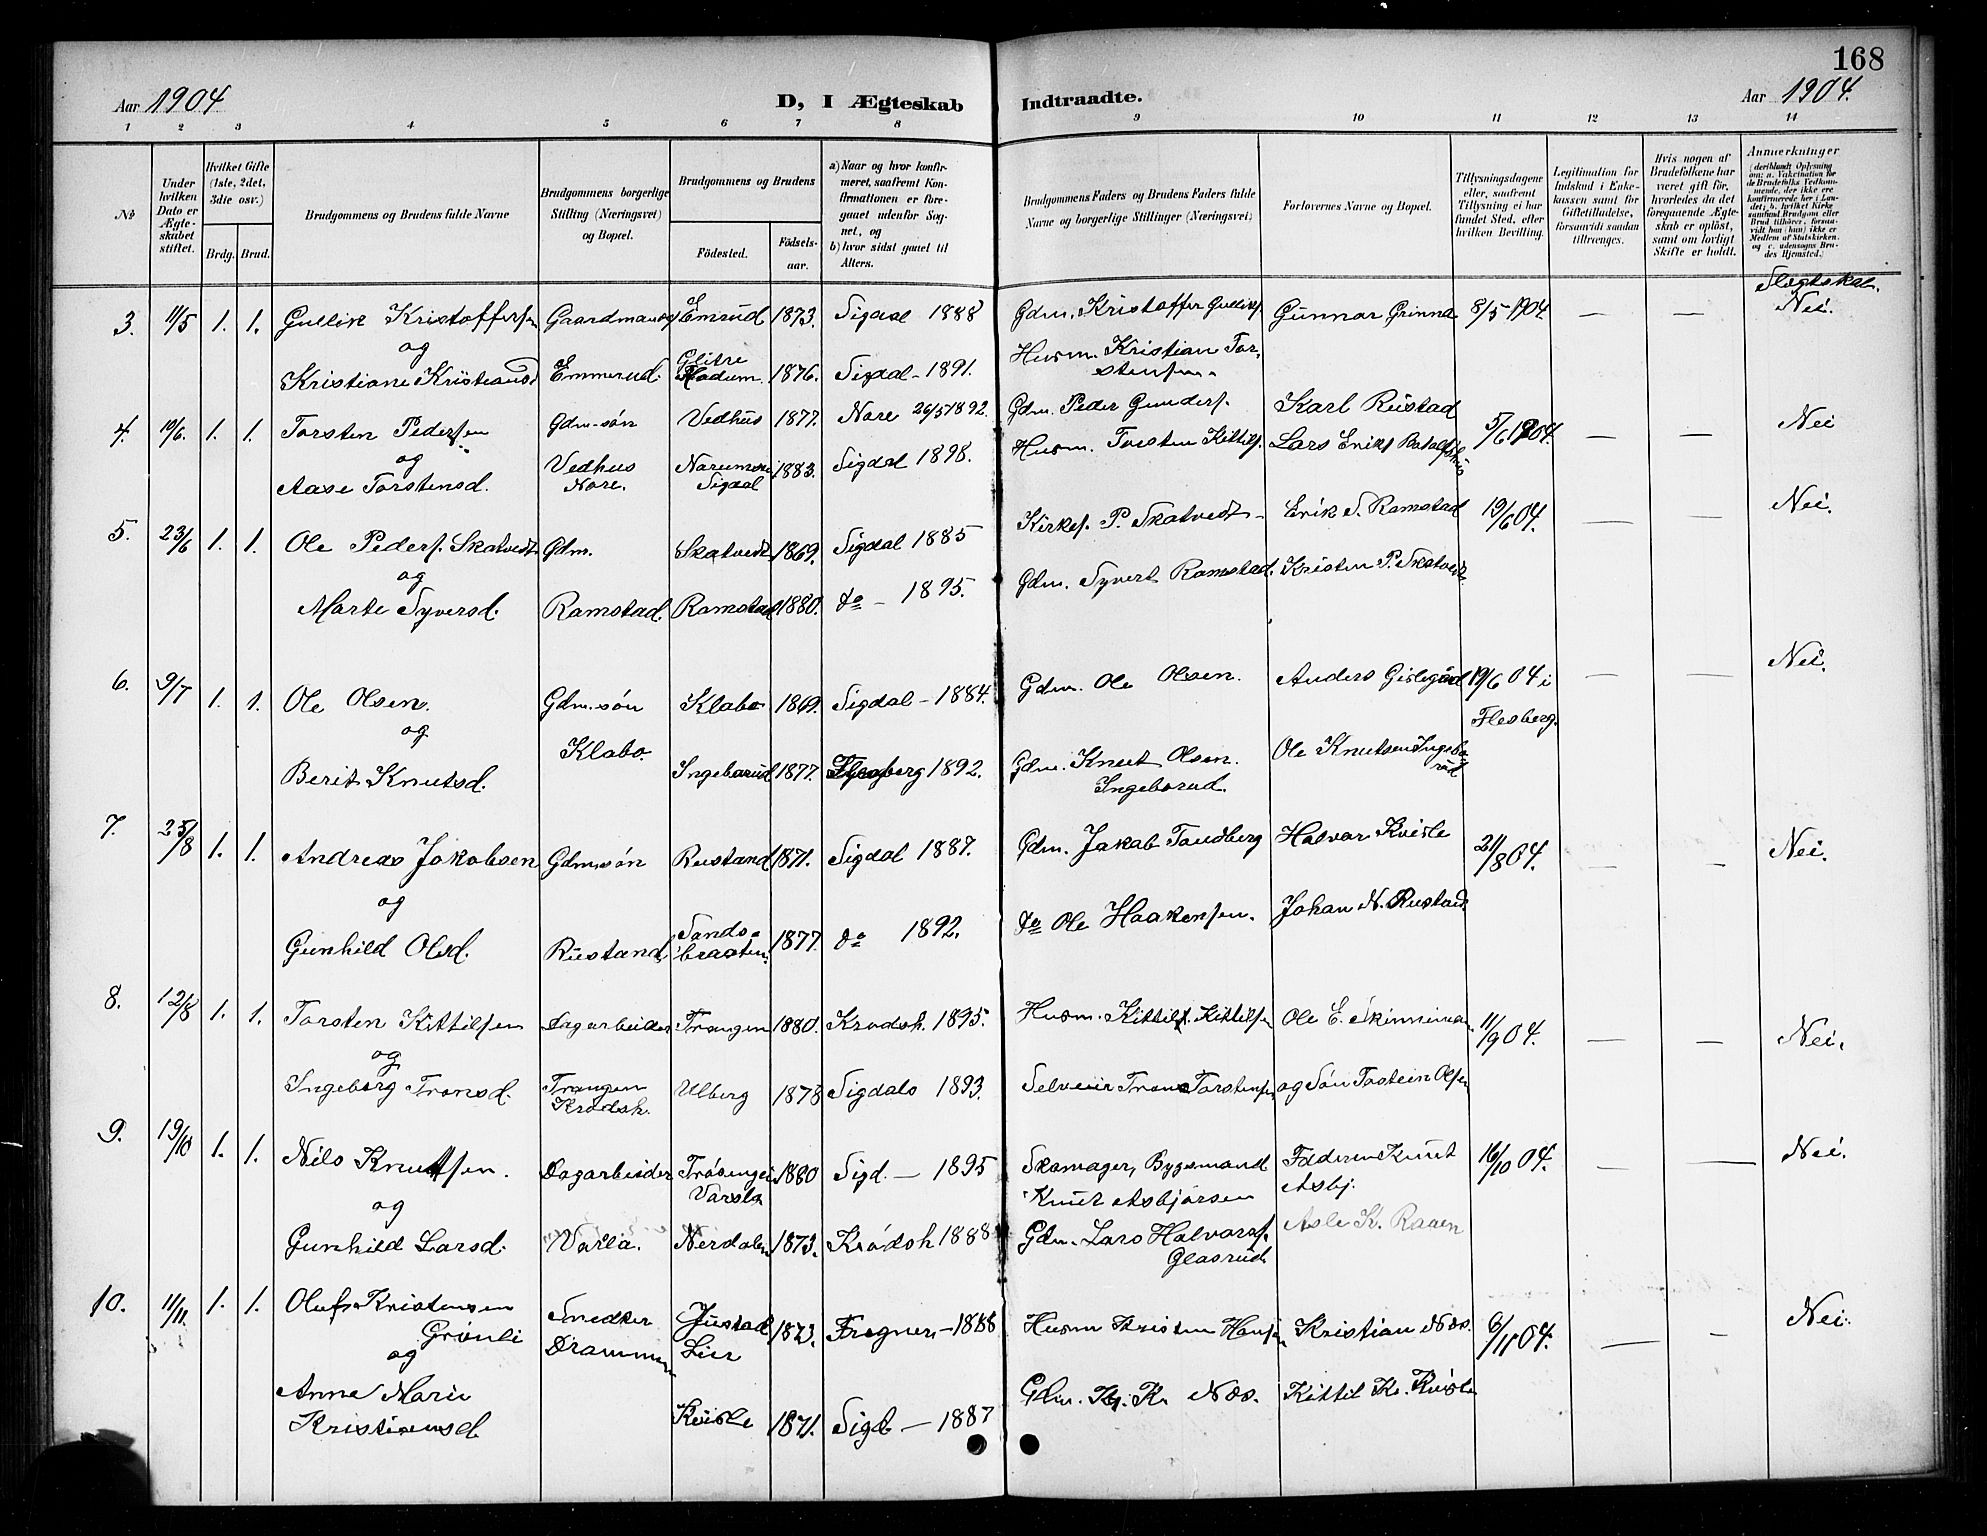 168
Aar 1904
D, I Ægteskab
Indtraadte.
Aar 1904.
1 2 3 4 5 6 7 8 9 10 11 12 13 14
No
Under hvilken Dato er Ægteskabet stiftet.
Hvilket Gifte (1ste, 2det, 3die osv.)
Brdg. Brud.
Brudgommens og Brudens fulde Navne
Brudgommens borgerlige Stilling (Næringsvei) og Bopæl.
Brudgommens og Brudens
Födested.
Födsels-aar.
a) Naar og hvor konfirmeret, saafremt Konfirmationen er foregaaet udenfor Sognet, og
b) hvor sidst gaaet til Alters.
Brudgommens Faders og Brudens Faders fulde Navne og borgerlige Stillinger (Næringsvei)
Forlovernes Navne og Bopæl.
Tillysningsdagene eller, saafremt Tillysning ei har fundet Sted, efter hvilken Bevilling.
Legitimation for Indskud i Enkekassen samt for Giftetilladelse, forsaavidt saadan tiltrænges.
Hvis nogen af Brudefolkene har været gift för, hvorledes da det foregaaende Ægteskab er oplöst, samt om lovligt Skifte er holdt.
Anmerkninger
(deriblandt Oplysning om: a. Vakcination for de Brudefolks Vedkommende, der ikke ere konfirmerede her i Landet; b. hvilket Kirkesamfund Brudgom eller Brud tilhörer, forsaavidt han (hun) ikke er Medlem af Statskirken, og c. udensogns Brudes Hjemsted.)
Slegtskab.
3. 11/5 1. 1. Gullik Kristoffersen Gaardmand Emrud 1873. Sigdal 1888 Gdm. Kristoffer Gulliks. Gunnar Grinna 8/5 1904 — — Nei.
og
Kristiane Kristiansd Emmerud. Glitre Modum. 1876. Sigdal - 1891. Husm. Kristian Torstensen.
4. 19/6. 1. 1. Torsten Pedersen Gdm-søn Vedhus 1877. Nore 26/5 1892. Gdm. Peder Gunders. Karl Rustad 5/6 1904. — — Nei
og
Aase Torstensd. Vedhus Nore. Sigdal 1883. Sigdal 1898. Husm. Torsten Kittils. Lars Eriks
5. 23/6 1. 1. Ole Peders. Skatvedt Gdm. Skatvedt 1869. Sigdal 1885 Kirkes. P. Skatvedt Erik S. Ramstad 19/6 04. — — Nei.
og
Marte Syversd. Ramstad. Ramstad 1880. do - 1895. Gdm. Syvert Ramstad. Kristen P. Skatvedt
6. 9/7 1. 1. Ole Olsen. Gdm.søn Klabo 1869. Sigdal - 1884. Gdm. Ole Olsen. Anders Gislerud 19/6 04 i Flesberg. — — Nei.
og
Berit Knutsd. Klabo. Ingeborud 1877. Flesberg 1892. Gdm. Knut Olsen. Ingeborud. Ole Knutsen Ingeborud
7. 25/8 1. 1. Andreas Jakobsen Gdmsøn Rustand 1871. Sigdal 1887. Gdm. Jakob Tandberg Halvor Kvisle 21/8 04. — — Nei.
og
Gunhild Olsd. Rustand. Sandsbraaten. 1877. do 1892. do Ole Haakensen. Johan N. Rustand.
8. 12/8 1. 1. Torsten Kittilsen Dagarbeider Trangen 1880. Krødsh. 1895. Husm. Kittil Kittilsen Ole E. 11/9 04. — — Nei.
og
Ingeborg Tronsd. Trangen Krødsh. Ulberg 1878 Sigdals 1893. Selveier Tron Torstensen og Søn Tostein Olsen
9. 19/10 1. 1. Nils Knutsen. Dagarbeider Varsla 1880 Sigd. — 1895 Skomager, Bygsmand Knut Asbjørsen Faderen Knut Asbj. 16/10 04. — — Nei.
og
Gunhild Larsd. Varla. Nerdalen 1873. Krødsh 1888 Gdm. Lars Halvors. Glasrud Asle K. Raaen
10. 11/11. 1. 1. Olufs Kristensen Grønli Snedker Drammen Justad Lier 1873. Frogner - 1888 Husm Kristen Hansen Kristian Næs. 6/11 04. — — Nei.
og
Anne Marie Kristiansd. Kvisle 1871. Sigd — 1887 Gdm. Kr. K. Næs. Kittil Kr. Kvisle